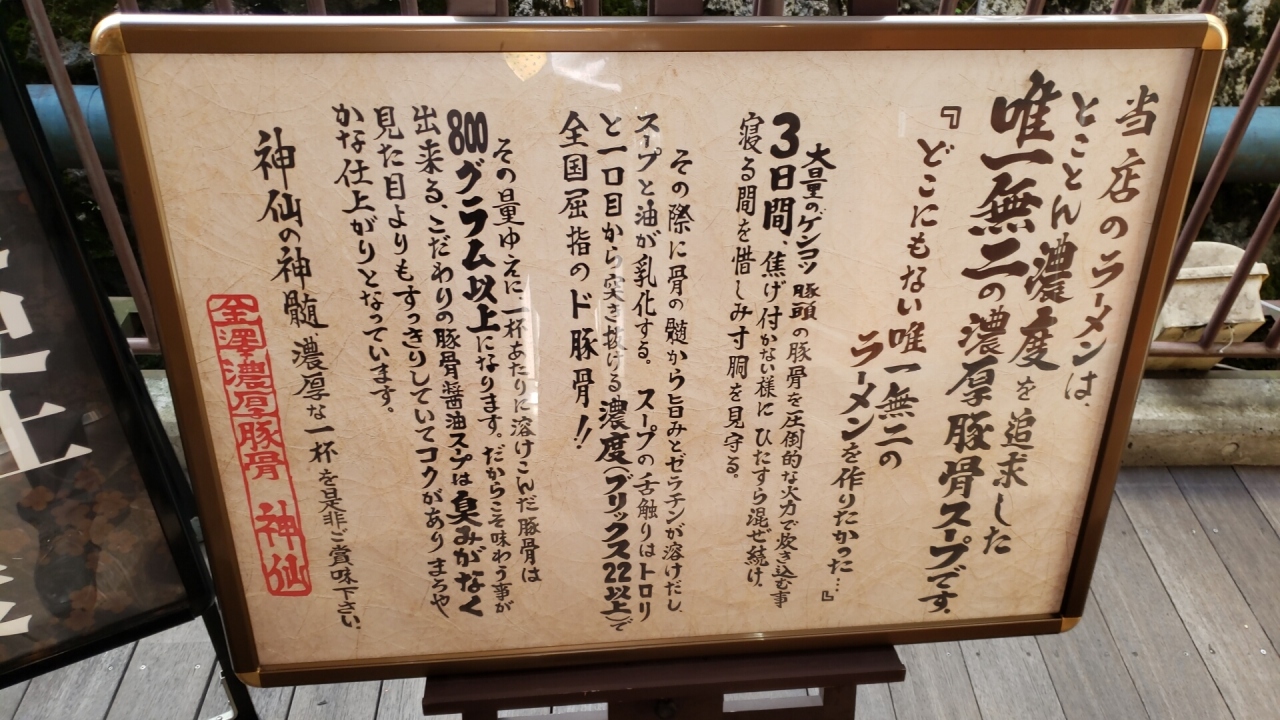 当店のラーメンは、
とことん濃度を追求した
唯一無二の濃厚豚骨スープです。
『どこにもない唯一無二の
ラーメンを作りたかった…』
大量のゲンコツ豚頭の豚骨を圧倒的な火力で炊き込む事
3日間、焦げ付かない様にひたすら混ぜ続け、
寝る間を惜しみ寸胴を見守る。
その際に骨の髄から旨みとゼラチンが溶けだし、
スープと油が乳化する。スープの舌触りはトロリ
と一口目から突き抜ける濃度(ブリックス22以上)で
全国屈指のド豚骨!!
その量ゆえに、一杯あたりに溶けこんだ豚骨は
800グラム以上になります。だからこそ味わう事が
出来る、こだわりの豚骨醤油スープは臭みがなく
見た目よりもすっきりしていてコクがありまろや
かな仕上がりとなっています。
神仙の神髄 濃厚な一杯を是非ご賞味下さい。
金澤濃厚豚骨 神仙